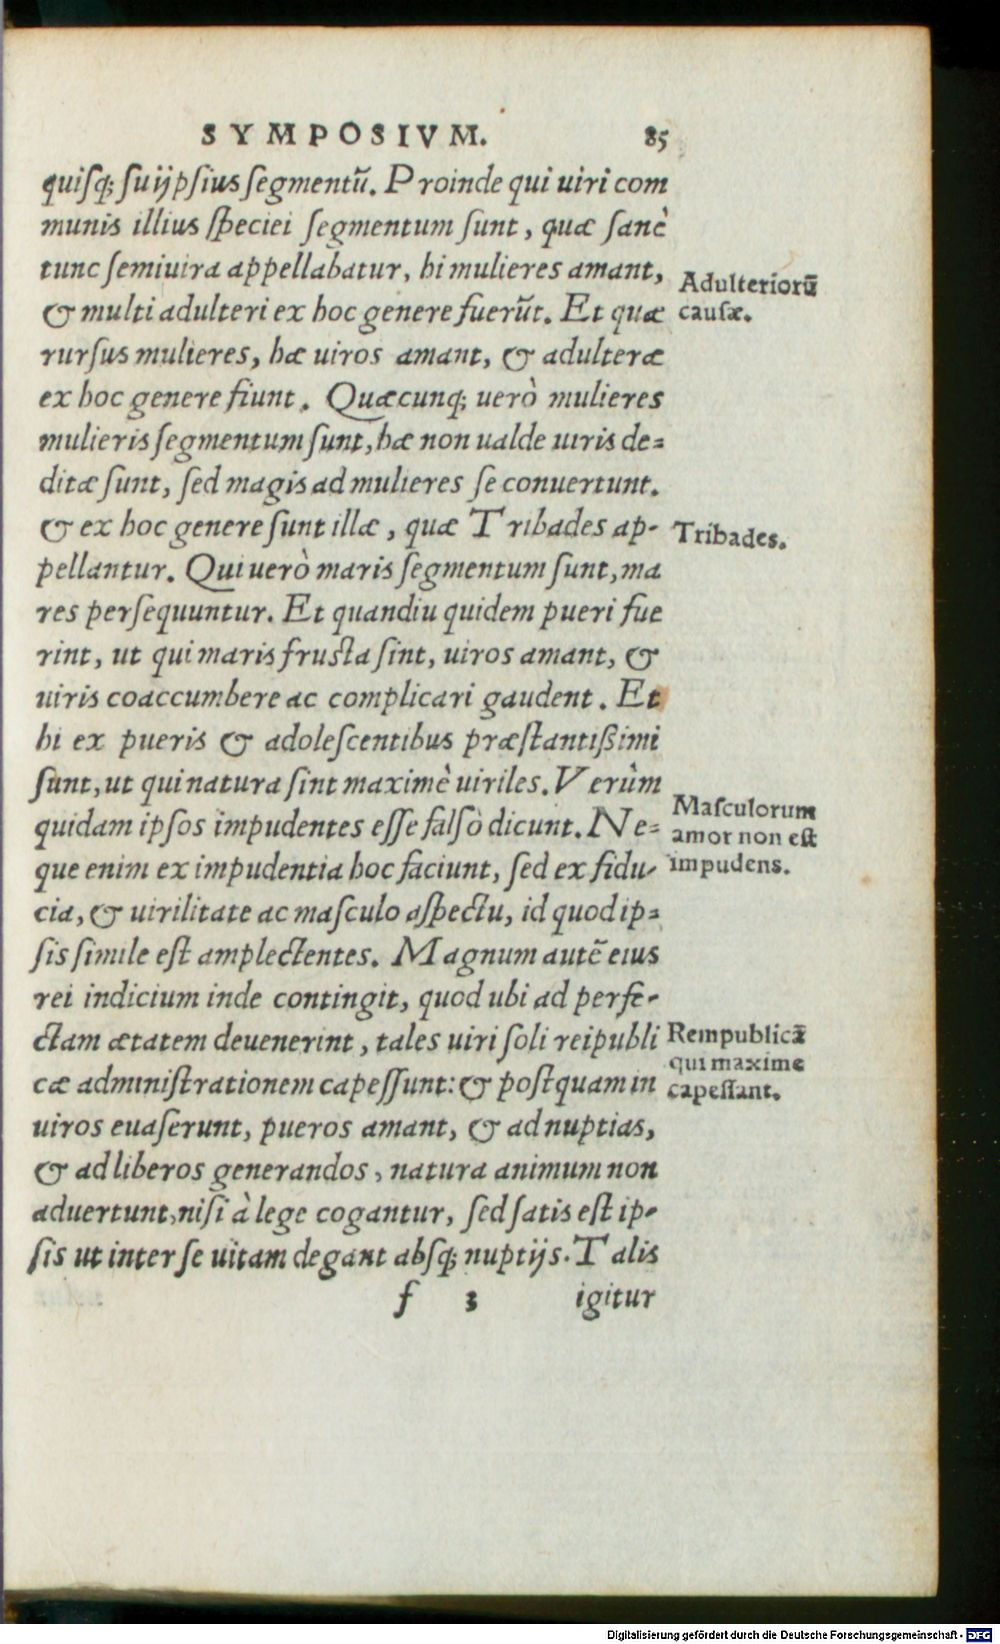 SYMPOSIVM. 85
quiſq; ſuijpſius ſegmentũ. Proinde qui uiri com
munis illius ſpeciei ſegmentum ſunt, quæ ſanè
tunc ſemiuira appellabatur, hi mulieres amant,
& multi adulteri ex hoc genere fuerũt. Et quæ
rurſus mulieres, hæ uiros amant, & adulteræ
ex hoc genere fiunt. Quæcunq; uerò mulieres
mulieris ſegmentum ſunt, hæ non ualde uiris de-
ditæ ſunt, ſed magis ad mulieres ſe conuertunt.
& ex hoc genere ſunt illæ, quæ Tribades ap-
pellantur. Qui uerò maris ſegmentum ſunt, ma
res perſequuntur. Et quandiu quidem pueri fue
rint, ut qui maris fruſta ſint, uiros amant, &
uiris coaccumbere ac complicari gaudent. Et
hi ex pueris & adoleſcentibus præſtantißimi
ſunt, ut qui natura ſint maximè uiriles. Verùm
quidam ipſos impudentes eſſe falſò dicunt. Ne-
que enim ex impudentia hoc faciunt, ſed ex fidu-
cia, & uirilitate ac maſculo aſpectu, id quod ip-
ſis ſimile eſt amplectentes. Magnum autẽ eius
rei indicium inde contingit, quod ubi ad perfe-
ctam ætatem deuenerint, tales uiri ſoli reipubli
cæ adminiſtrationem capeſſunt: & poſtquam in
uiros euaſerunt, pueros amant, & ad nuptias,
& ad liberos generandos, natura animum non
aduertunt, niſi à lege cogantur, ſed ſatis eſt ip-
ſis ut inter ſe uitam degant abſq; nuptijs. Talis
f 3 igitur
Adulteriorũ
cauſæ.
Tribades.
Maſculorum
amor non eſt
impudens.
Rempublicã
qui maxime
capeſſant.
Digitalisierung gefördert durch die Deutsche Forschungsgemeinschaft - DFG